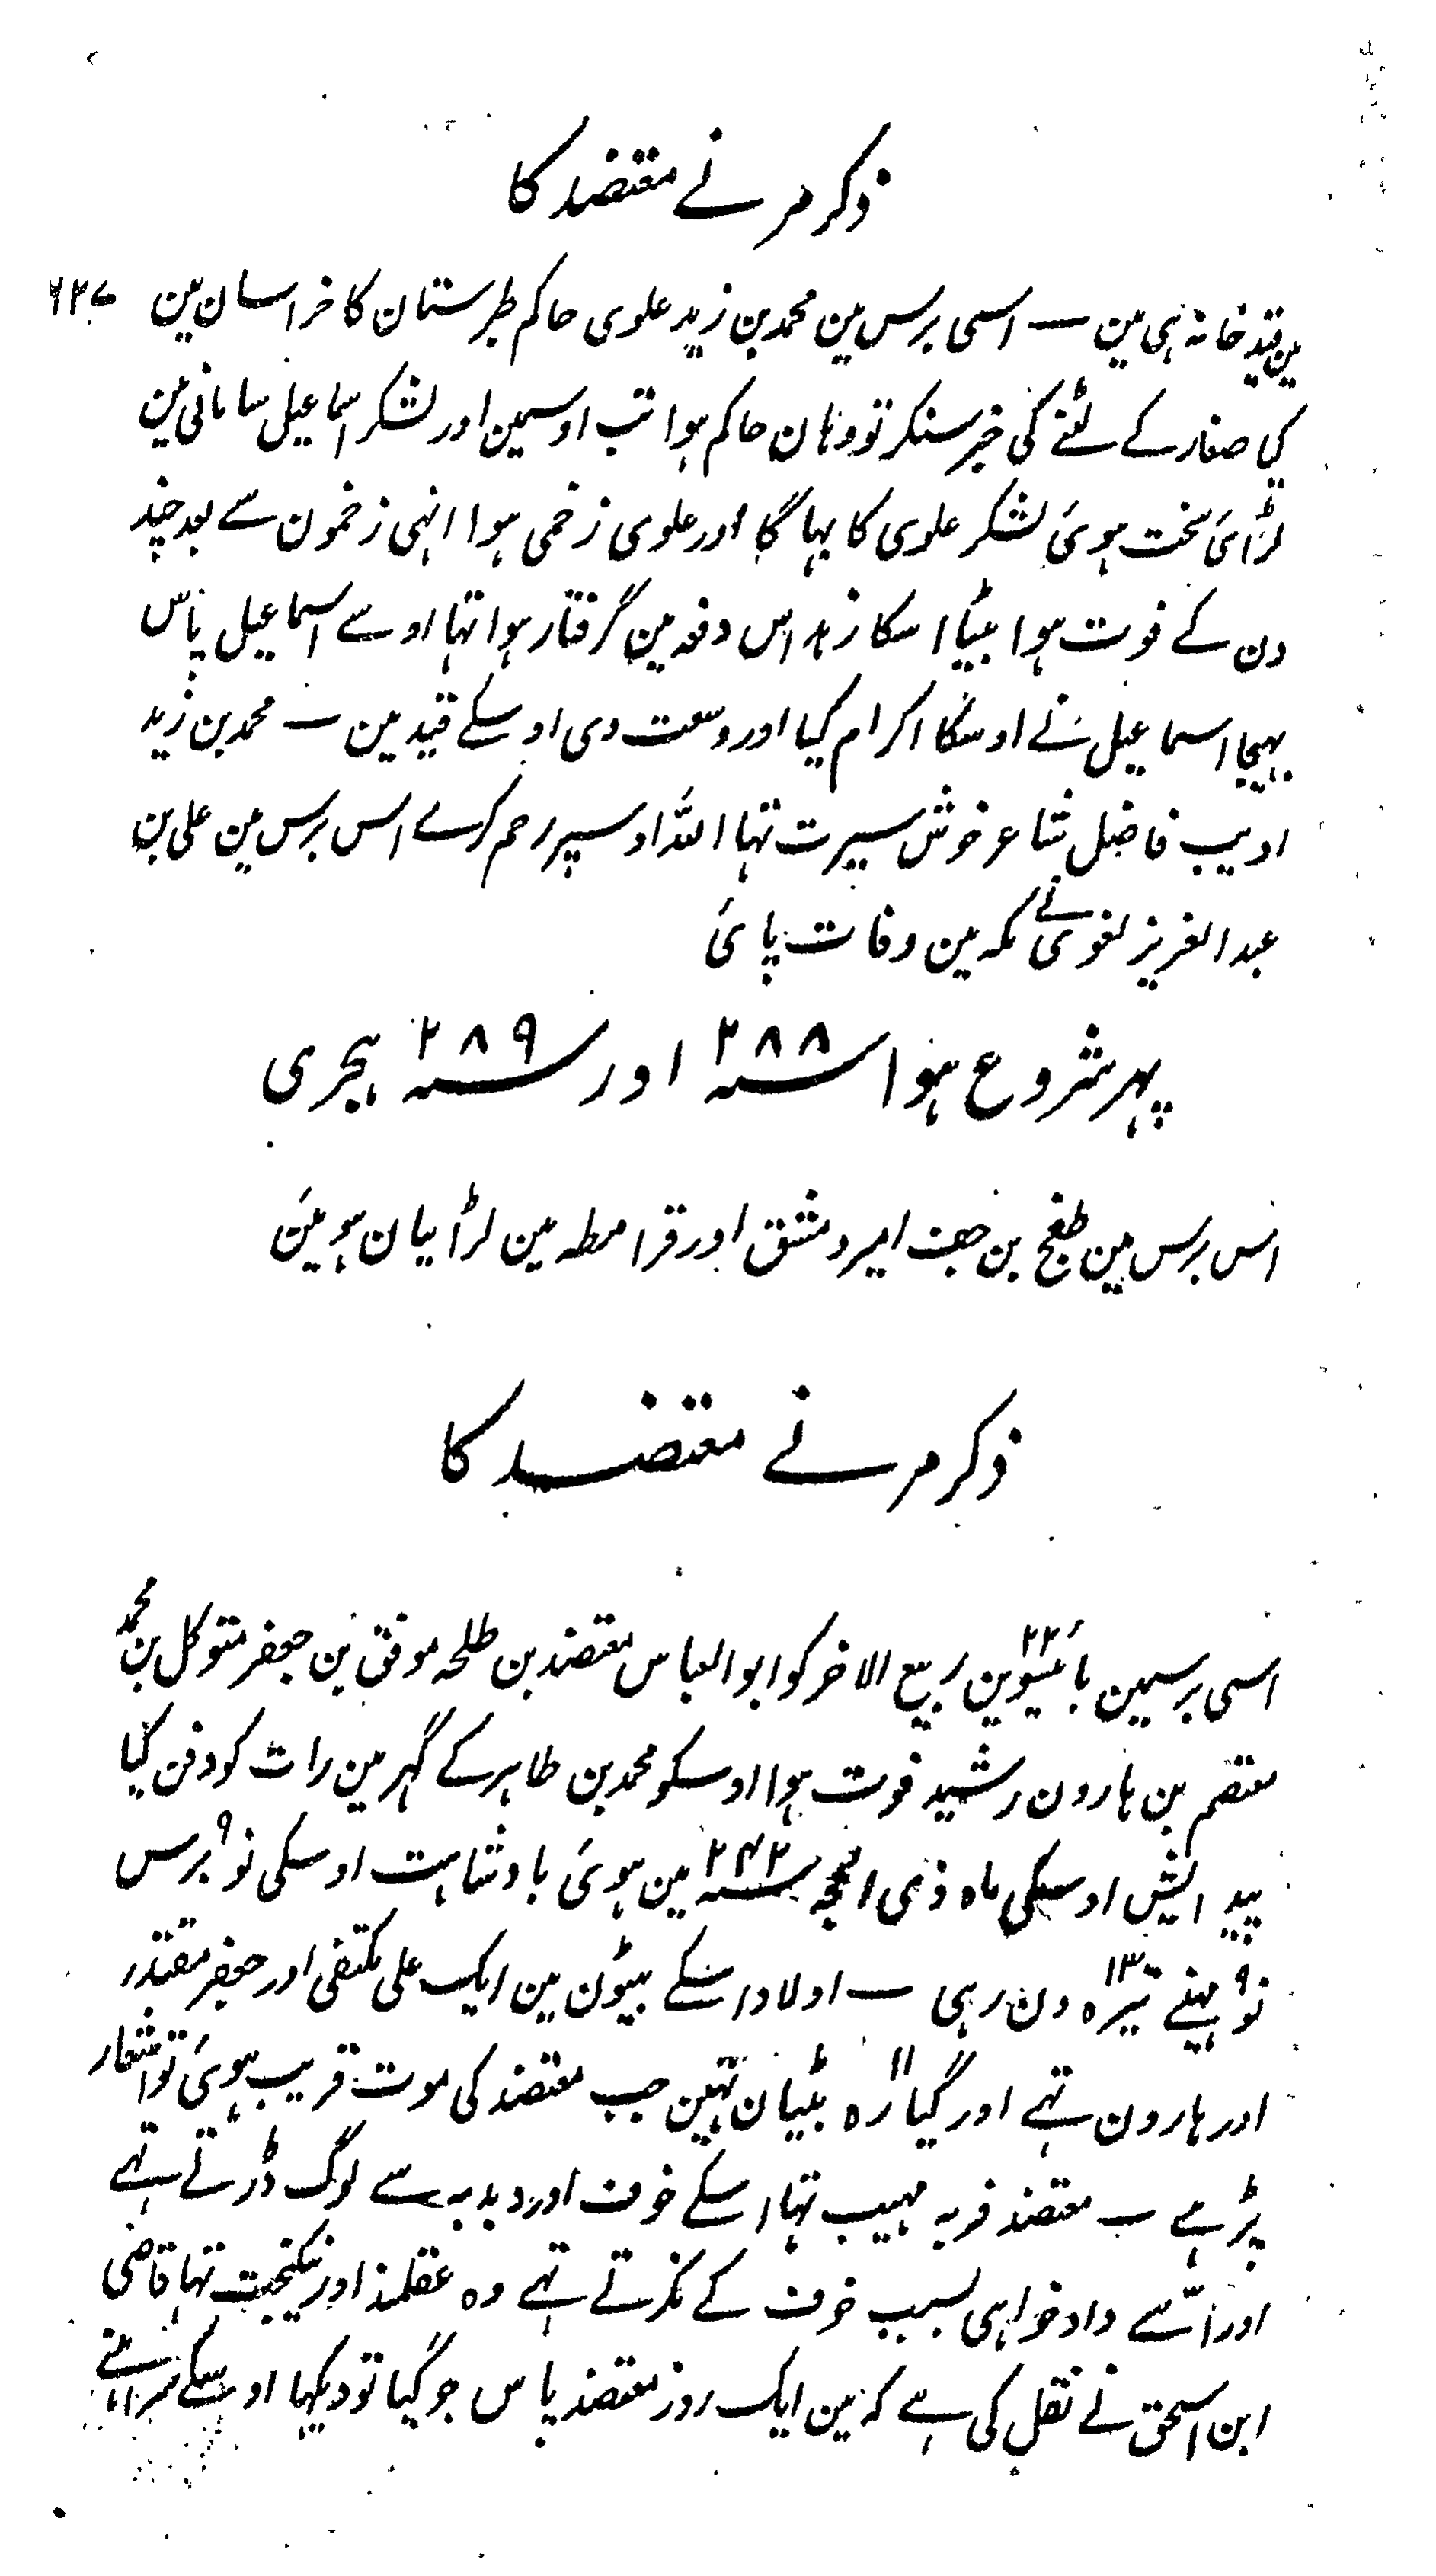 ذکر مرنے معتضد کا
۶۲۷
مین قید خانہ ہی مین ــ اسی برس مین محمد بن زید علوی حاکم طبرستان کا خراسان مین
کی صفار کے لٹنے کی خبر سنکر تو وہان حاکم ہوا تب اوسمین اور لشکر اسماعیل سامانی مین
لڑائی سخت ہوئی لشکر علوی کا بہاگا اور علوی زخمی ہوا انہی زخمون سے بعد چند
دن کے فوت ہوا بیٹا اسکا زید اس دفعہ مین گرفتار ہوا تہا اوسے اسماعیل پاس
بہیجا اسماعیل نے اوسکا اکرام کیا اور وسعت دی اوسکے قید مین ــ محمد بن زید
ادیب فاضل شاعر خوش سیرت تہا اللہ اوسپر رحم کرے اس برس مین علی بن
عبد العزیز لغوی نے مکہ مین وفات پائی
پہر شروع ہوا سنہ ۲۸۸ اور سنہ ۲۸۹ ہجری
اس برس مین طغج بن جف امیر دمشق اور قرامطہ مین لڑائیان ہوئین
ذکر مرنے معتضد کا
اسی برسمین بائیسوین ۲۲ ربیع الاخر کو ابو العباس معتضد بن طلحہ موفق بن جعفر متوکل بن محمد
معتصم بن ہارون رشید فوت ہوا اوسکو محمد بن طاہر کے گہر مین رات کو دفن کیا
پیدایش اوسکی ماہ ذی الحجہ سنہ ۲۴۲ مین ہوئی بادشاہت اوسکی نو ۹ برس
نو ۹ مہینے تیرہ ۱۳ دن رہی ــ اولاد انکے بیٹون مین ایک علی مکتفی اور جعفر مقتدر
اور ہارون تہے اور گیارہ ۱۱ بیٹیان تہین جب معتضد کی موت قریب ہوئی تو اشعار
پڑہے ــ معتضد فربہ مہیب تہا اسکے خوف اور دبدبہ سے لوگ ڈرتے تہے
اور اسّے دادخواہی بسبب خوف کے نکرتے تہے وہ عقلمند اور نیکبخت تہا قاضی
ابن اسحق نے نقل کی ہے کہ مین ایک روز معتضد پاس جو گیا تو دیکہا اوسکے سرہانے